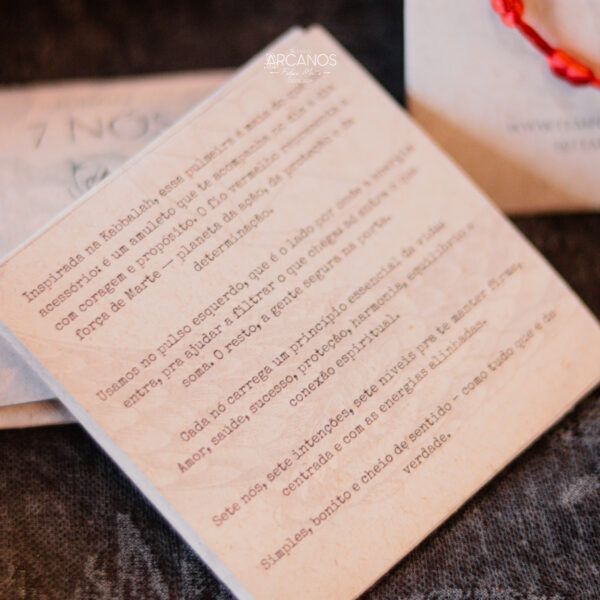 ARCANOS
7 NÓS
Inspirada na Kabbalah, essa pulseira é mais do que
acessório: é um amuleto que te acompanha no dia a dia
com coragem e propósito. O fio vermelho representa a
força de Marte — planeta da ação, da proteção e da
determinação.
Usamos no pulso esquerdo, que é o lado por onde a energia
entra, pra ajudar a filtrar o que chega: só entra o que
soma. O resto, a gente segura na porta.
Cada nó carrega um princípio essencial da vida:
Amor, saúde, sucesso, proteção, harmonia, equilíbrio e
conexão espiritual.
Sete nós, sete intenções, sete níveis pra te manter firme,
centrada e com as energias alinhadas.
Simples, bonito e cheio de sentido — como tudo que é de
verdade.